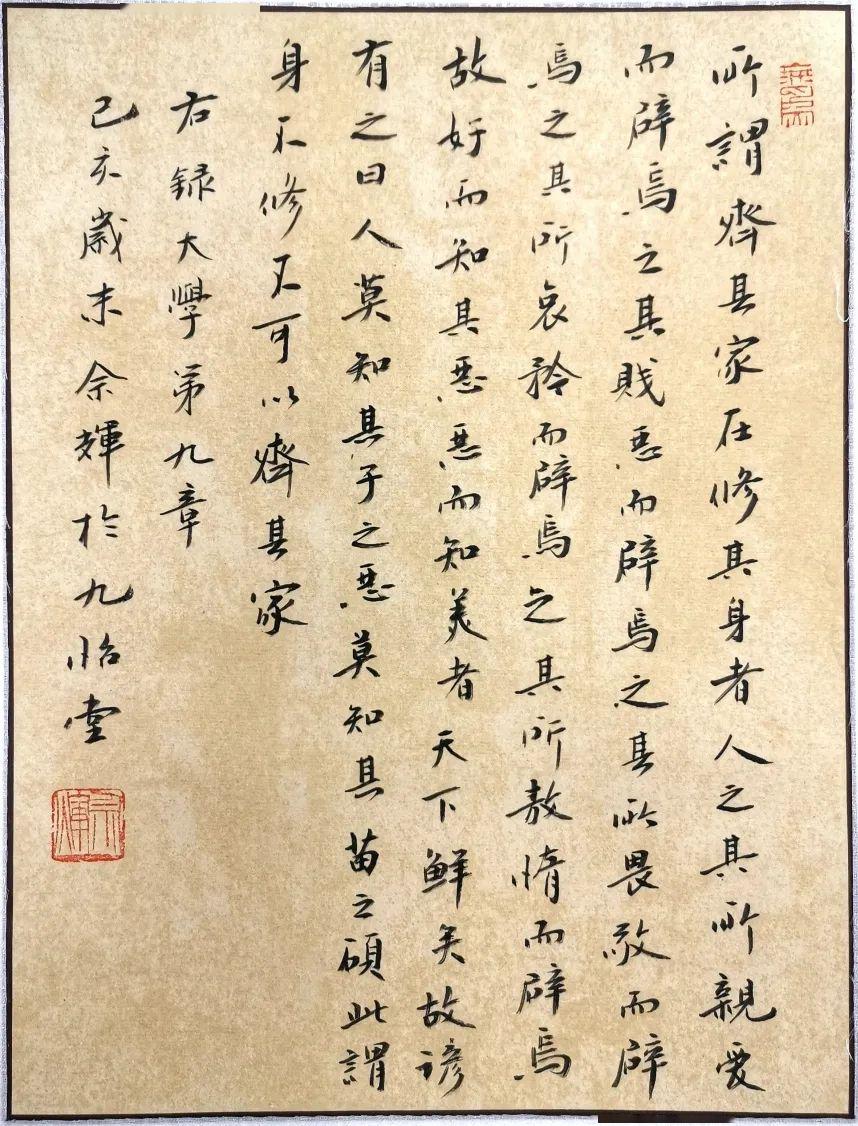 所謂齊其家在修其身者人之其所親愛
而辟焉之其賤惡而辟焉之其所畏敬而辟
焉之其所哀矜而辟焉之其所敖惰而辟焉
故好而知其惡惡而知美者天下鮮矣故諺
有之曰人莫知其子之惡莫知其苗之碩此謂
身不修不可以齊其家
右録大學第九章
己亥歲末余輝於九怡堂